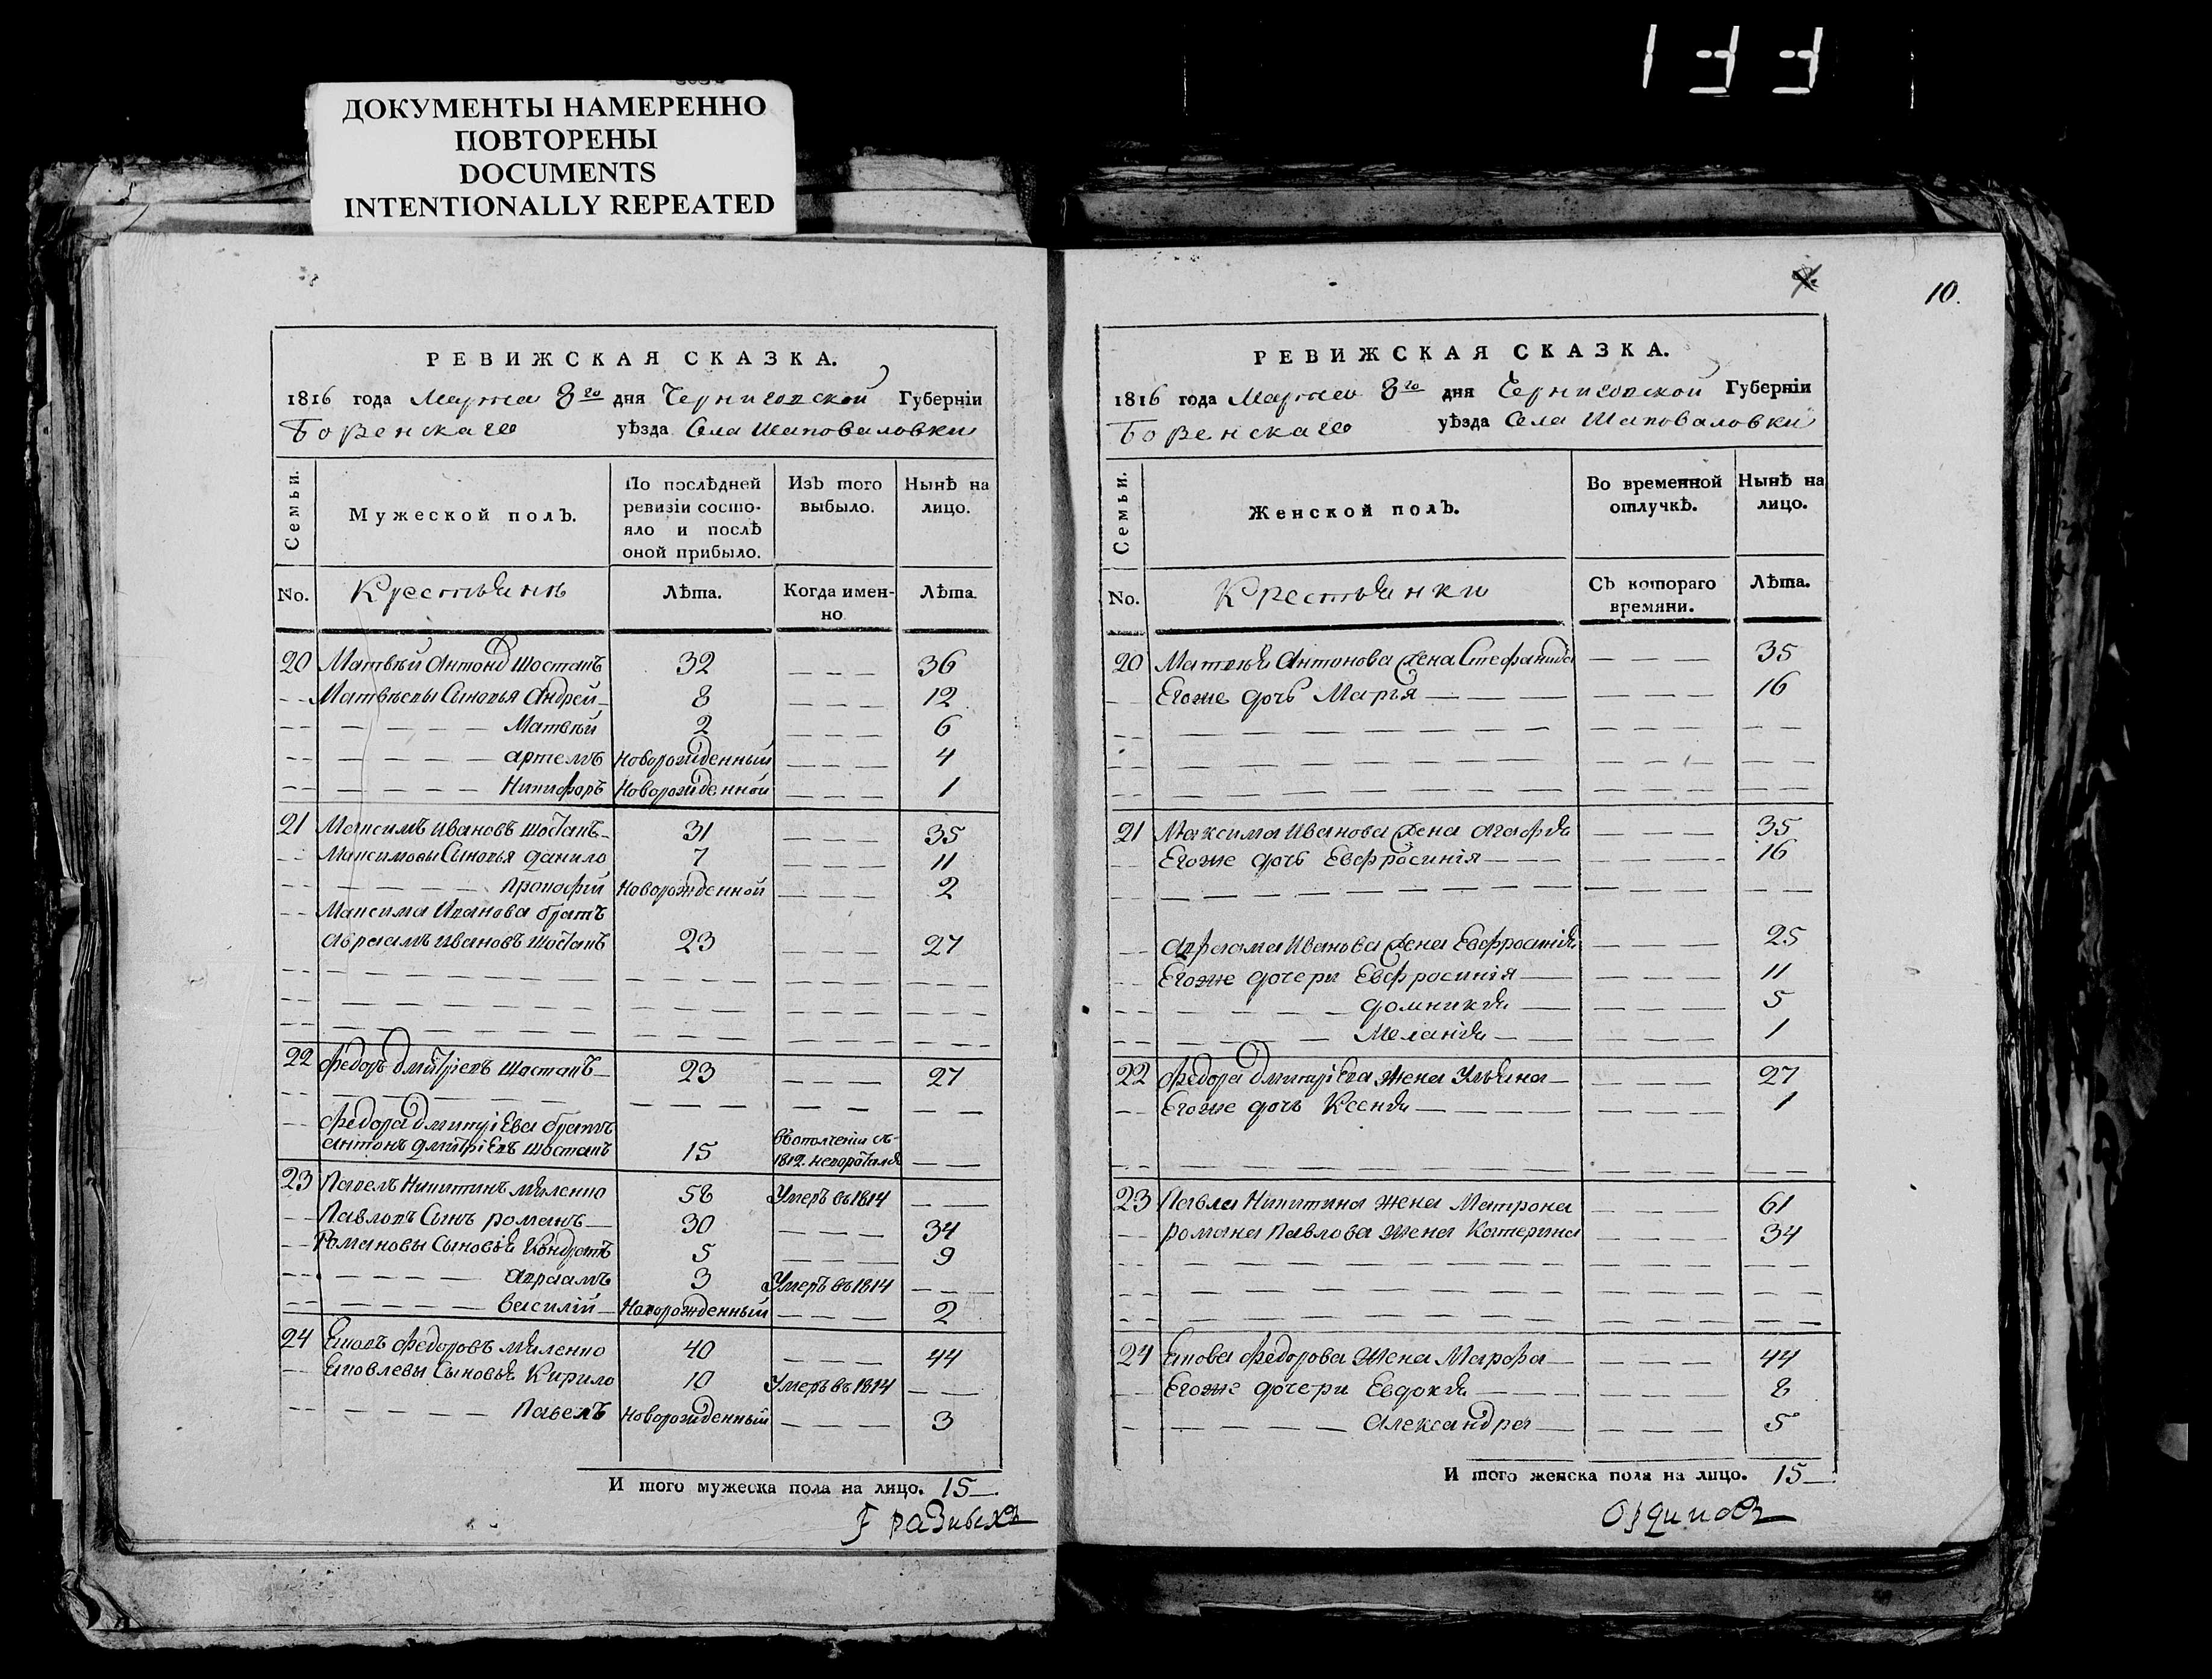 133
ДОКУМЕНТЫ НАМЕРЕННО
ПОВТОРЕНЫ
DOCUMENTS
INTENTIONALLY REPEATED
РЕВИЖСКАЯ СКАЗКА.
1816 года Марта 8го дня Черниговской Губерніи
Борзенскаго уѣзда Села Шаповаловки
Семьи.
Мужеской полъ.
По послѣдней ревизіи состояло и послѣ оной прибыло.
Изъ того выбыло.
Нынѣ на лицо.
No. Крестьянъ Лѣта. Когда именно Лѣта
20 Матвѣй Антоновъ Шостакъ 32 — — — 36
— — Матвѣевы Сыновья Андрей — 8 — — — 12
— — — — — — — Матвѣй 2 — — — 6
— — — — — — — артемъ Новорожденный — — — 4
— — — — — — — Никифоръ Новорожденной — — — 1
21 Максимъ Ивановъ Шостакъ — 31 — — — 35
— — Максимовы Сыновья данило 7 — — — 11
— — — — — — — Прокофій Новорожденной — — — 2
— — Максима Иванова братъ
авраамъ Ивановъ Шостакъ 23 — — — 27
22 Федоръ Дмитріевъ Шостакъ — 23 — — — 27
— — Федора Дмитріева братъ
антонъ дмитріевъ Шостакъ 15 въ ополченіи съ 1812. — —
23 Павелъ Никитинъ Миленко 58 Умеръ въ 1814 — —
— — Павловъ Сынъ романъ — 30 — — — 34
— — Романовы Сыновья Кондратъ 5 — — — 9
— — — — — — — авраамъ 3 Умеръ въ 1814 — — —
— — — — — — — Василій — Новорожденный — — — 2
24 Яковъ Федоровъ Миленко 40 — — — 44
— — Яковлевы Сыновья Кирило 10 Умеръ въ 1814 — —
— — — — — — — Павелъ Новорожденный — — — 3
И того мужеска пола на лицо. 15 —
10.
РЕВИЖСКАЯ СКАЗКА.
1816 года Марта 8го дня Черниговской Губерніи
Борзенскаго уѣзда Села Шаповаловки
Семьи.
Женской полъ.
Во временной отлучкѣ.
Нынѣ на лицо.
No. Крестьянки Съ котораго времяни. Лѣта.
20 Матвѣя Антонова жена Стефанида — — — 35
— — Егоже дочь Марья — — — — — — 16
21 Максима Иванова жена агафья — — — 35
— — Егоже дочь Евфросинія — — — — — — 16
— — авраама Иванова жена Евфросинія — — — 25
— — Егоже дочери Евфросинія — — — — 11
— — — — — — — домникія — — — — 5
— — — — — — — Меланія — — — — 1
22 Федора Дмитріева жена Ульяна — — — — 27
— — Егоже дочь Ксенія — — — — — — 1
23 Павла Никитина жена Матрона — — — 61
— — романа Павлова жена Катерина — — — 34
24 Якова Федорова жена Марфа — — — — 44
— — Егоже дочери Евдокія — — — — — 8
— — — — — — — александра — — — — 5
И того женска пола на лицо. 15 —